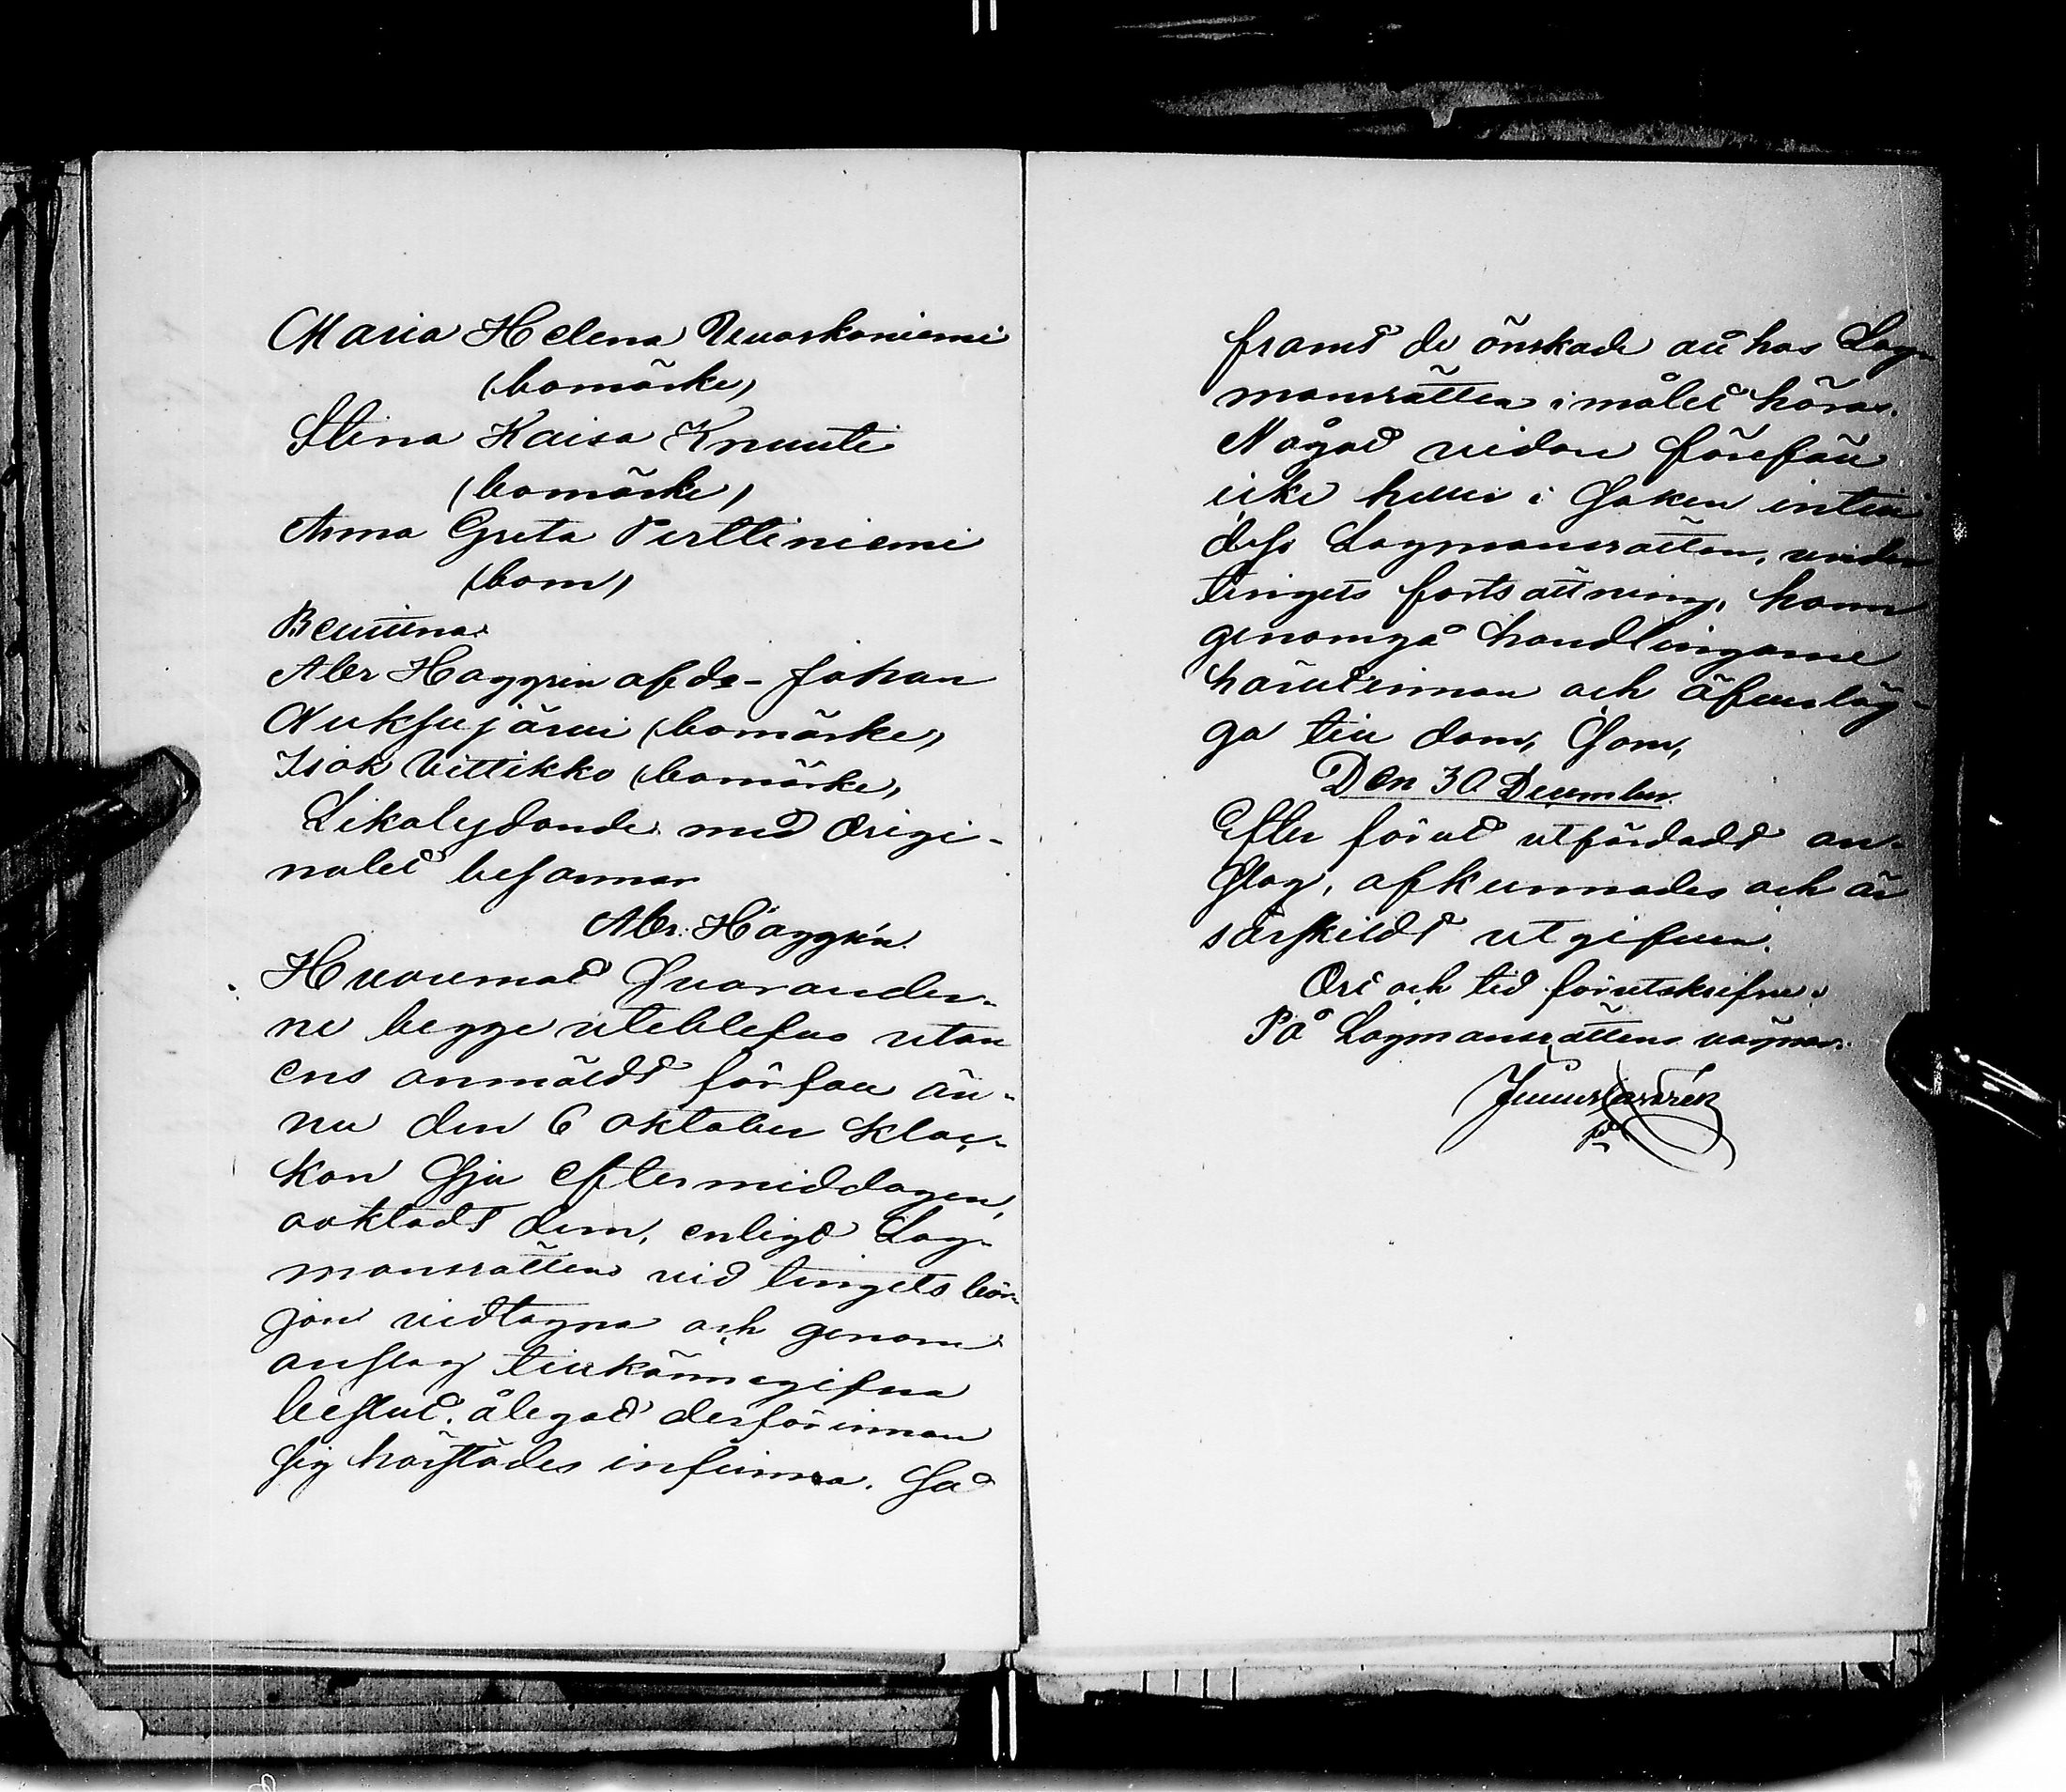 Maria Helena Vuoskoniemi
(bomärke)
Stina Kaisa Knuuti
(bomärke)
Anna Greta Perttiniemi
(bom)
Bevittna:
Abr Häggrén afds- Johan
Nuksujärvi (bomärke)
Isak Vittikko (bomärke)
Likalydande med Origi-
nalet besannar
Abr. Häggrén.
Hvaremot Svarander-
ne begge uteblefvo utan
ens anmäldt förfall än-
nu den 6 oktober Kloc-
kan Sju eftermiddagen,
oaktadt dem, enligt Lag-
mansrättens vid tingets bör-
jan vidtagna och genom
anslag tillkännagifna
beslut, ålegat derförinnan
Sig härstädes infinna. Så
framt de önskade att hos Lag-
mansrätten i målet höras.
Något vidare föreföll
icke heller i Saken intill
dess Lagmansrätten, under
tingets fortsättning, hann
genomgå handlingarne
härutinnan och öfverläg-
ga till dom, Som,
Den 30 December
Efter förut utfärdadt an-
Slag, afkunnades och är
särskildt utgifven.
Ort och tid förutskrifne.
På Lagmansrättens vägnar: